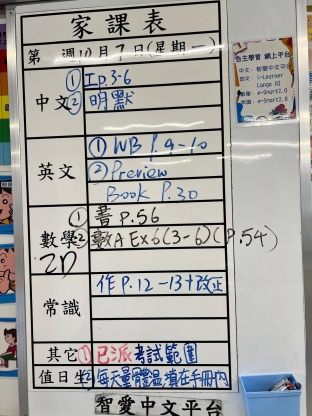 家課表
第 週10月7日(星期一)
中文 ①Ip.3-6
②明默
英文 ①WB P.9-10
②Preview
Book P.30
數學 ①書P.56
②數A Ex6(3-6)(P.54)
2D
常識 作P.12-13+改正
其它 ①已派考試範圍
值日生 ②每天量體温填在手冊內
智愛中文平台
自主學習 網上平台
中文:智愛中文平台
英文:i-Learner
數學:e-Smart2.0
常識:e-Smart2.0